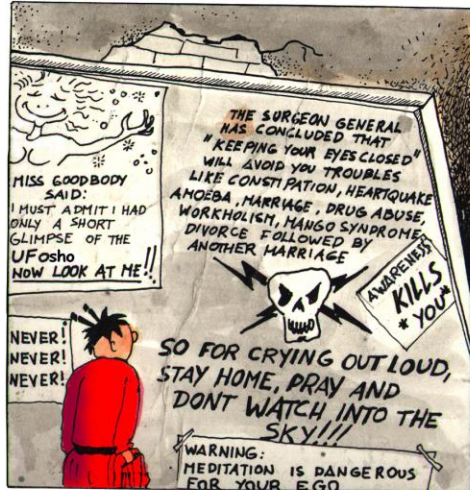 MISS GOODBODY
SAID:
I MUST ADMIT I HAD
ONLY A SHORT
GLIMPSE OF THE
UFosho
NOW LOOK AT ME!!
THE SURGEON GENERAL
HAS CONCLUDED THAT
"KEEPING YOUR EYES CLOSED"
WILL AVOID YOU TROUBLES
LIKE CONSTIPATION, HEARTQUAKE
AMOEBA, MARRIAGE, DRUG ABUSE,
WORKHOLISM, MANGO SYNDROME,
DIVORCE FOLLOWED BY
ANOTHER MARRIAGE
AWARENESS
KILLS
*YOU*
NEVER!
NEVER!
NEVER!
SO FOR CRYING OUT LOUD,
STAY HOME, PRAY AND
DONT WATCH INTO THE
SKY!!!
WARNING:
MEDITATION IS DANGEROUS
FOR YOUR EGO